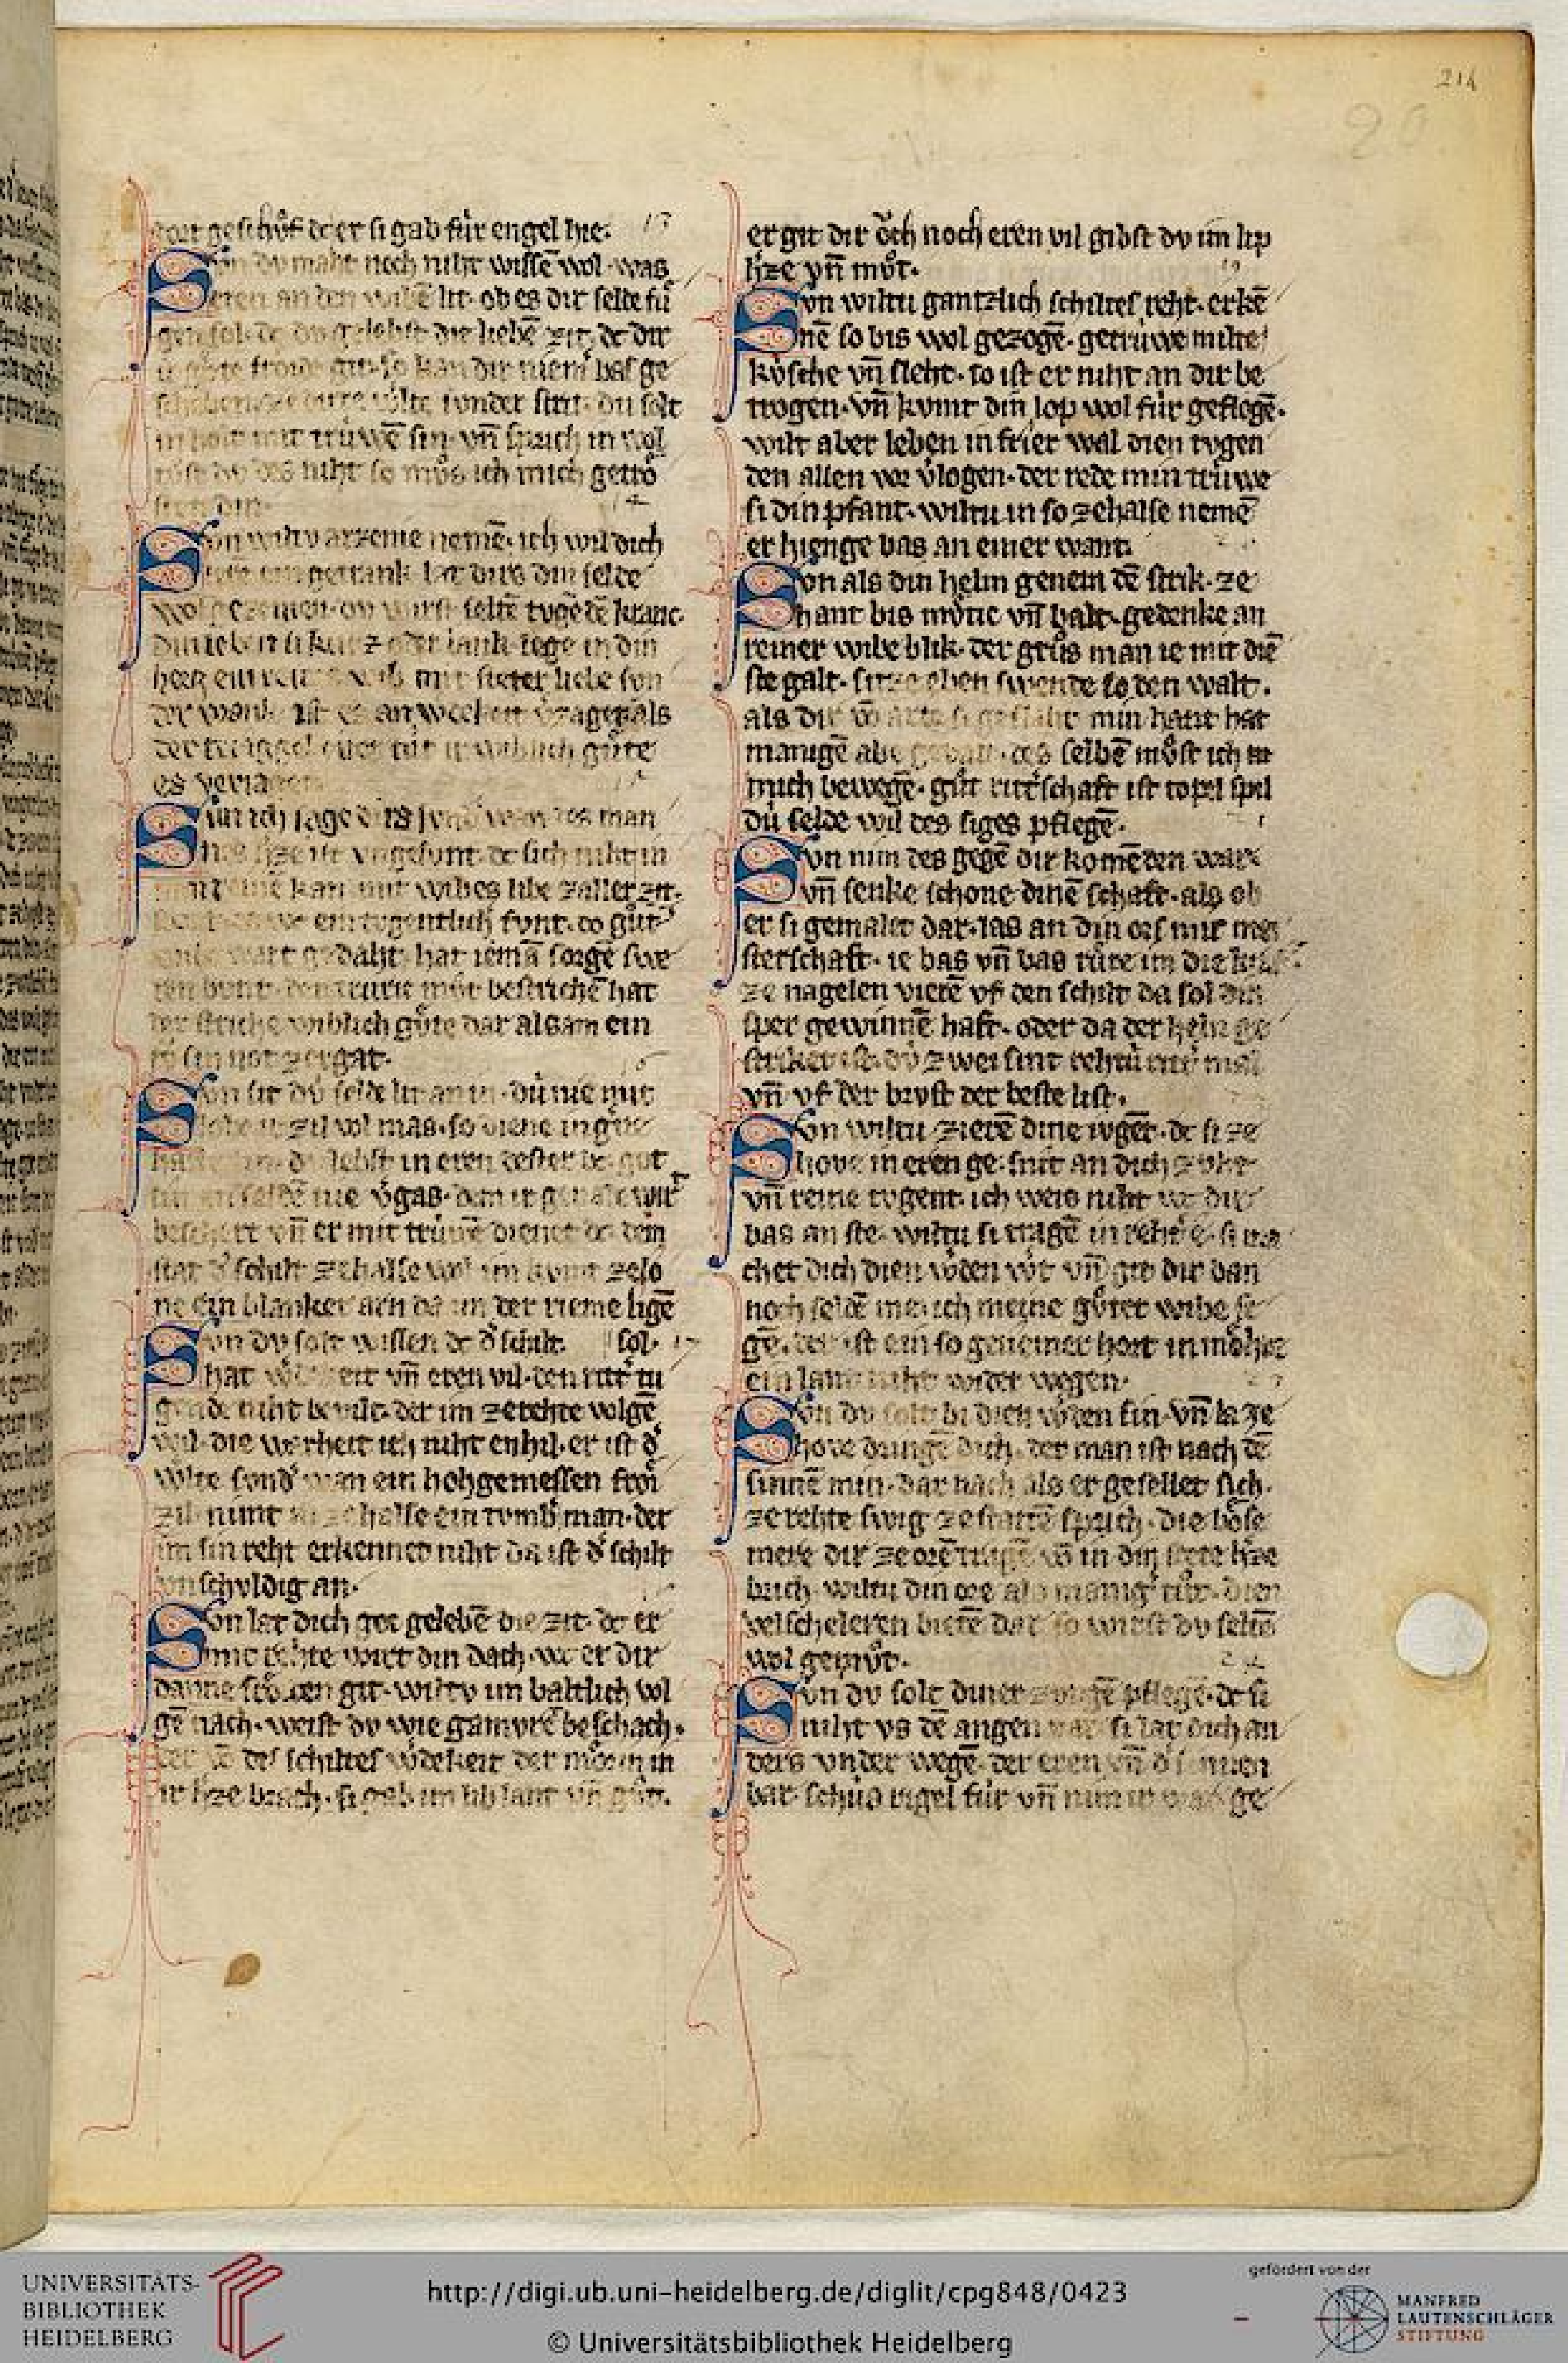 214
20
geschoͮf dc er si gab fúr engel hie.
du maht noch niht wissē wol was
eren an den wibē lit. ob es dir selde fuͤ
gen sol. dc du gelebst die liebē zit. dc dir
ir guͤte froide git. so kan dir niem̄ bas ge
wͤlte sunder strit. du solt
in holt mit trúwē sin. vn̄ sprich in wol
tuͦst du des niht so muͦs ich mich getroͤ
sten din.
Sun wiltu arzenie nemē. ich wil dich
ein getrank. lat dirs din selde
wol gezemen. du wirst seltē tugēdē kranc.
din leben si kurz oder lank. lege in din
herz ein reines wib mit steter liebe sun
der wank. ist es an werdeit v͛zaget als
der triaggel eiter tuͦt ir wiblich guͤte
es veriagen.
Sun ich sage dirs
ist vngesunt. dc sich niht in
kan mit wibes libe zaller zit.
ein tugentlich funt. do guͦt
wart gedaht. hat iemā sorgē swe
den trurē muͦt bestrichē hat
der striche wiblich guͤte dar alsam ein
sin not zergat.
Sun sit
zil vn̄ mas. so diene in gͦte
du lebst in eren dester bc. got
seldē nie v͛gas. dem ir gͦnade wirt
beschert vn̄ er mit trúwē dienet dc. dem
stat d͛ schilt zehalse wol im kumt zelo
ne ein blanker arn da in der rieme ligē
Sun du solt wissen dc d͛ schilt. sol. 17
hat eit vn̄ eren vil. den ritt͛ tu
gende niht bevilt. der im zerehte volgē
wil. die warheit ich niht enhil. er ist d͛
wͤlte sund͛ wan ein hohgemessen froͤi
zil. nimt in zehalse ein tumb͛ man. der
im sin reht erkennet niht da ist d͛ schilt
vnschuldig an.
Sun lat dich got gelebē die zit. dc er
mit rehte wirt din dach. wc er dir
danne froͤiden git. wiltu im baltlich vol
gē nach. weist du wie gamurē beschach.
der vō des schiltes wͦdekeit der moͤrin in
ir h͛ze brach. si gab im lib lant vn̄ guͦt.
er git dir oͮch noch eren vil gibst du im lip
h͛ze vn̄ muͦt.
Sun wiltu gantzlich schiltes reht. erkē
nē so bis wol gezogē. getrúwe milte
kúsche vn̄ sleht. so ist er niht an dir be
trogen. vn̄ kumt din lop wol fúr geflogē.
wilt aber leben in frier wal dien tugen
den allen vor v͛logen. der rede min trúwe
si din pfant. wiltu in so zehalse nemē
er hienge bas an einer want.
Sun als din helm genem dē strik. ze
hant bis muͤtic vn̄ balt. gedenke an
reiner wibe blik. der gruͦs man ie mit diē
ste galt. sitze eben swende so den walt.
als dir vō arte si min hant hat
manigē abe des selbē muͦst ich
mich bewegē. guͦt ritt͛schaft ist topel spil
dú selde wil des siges pflegē.
Sun nim des gegē dir komēden war
vn̄ senke schone dinē schaft. als ob
er si gemalet dar. las an din ors mit mei
sterschaft. ie bas vn̄ bas rúre im die kraft.
ze nagelen vierē vf den schilt da sol din
sper gewinnē haft. oder da der helm ge
striket ist. dú zwei sint rehtú ritt͛ mal
vn̄ vf der tiust der beste list.
Sun wiltu zierē dine iugēt. dc si ze
hove in eren ge. snit an dich zuht
vn̄ reine tugent. ich weis niht wc dir
bas an ste. wiltu si tragē in rehter e. si ma
chet dich dien wͦden wͦt vn̄ git dir dan
noch seldē me. ich meine guͦter wibe se
gē. der ist ein so genemer hort in moͤhte
ein lant niht wider wegen.
Sun du solt bi dien wͦden sin. vn̄ la ze
hove dringē dich. der man ist nach dē
sinnē min. dar nach als er gesellet sich.
ze rehte swig ze stattē sprich. die boͤse
mere dir ze orē tragē vō in din stete h͛ze
brich. wiltu din ore als manig͛ tuͦt. dien
velscheleren bietē dar so wirst du seltē
wol gemuͦt.
Sun du solt diner zungē pflegē. dc si
niht vs dē angen var si lat dich an
ders vnder wegē. der eren vn̄ d͛ sinnen
bar. schus rigel fúr vn̄ nim ir war ge
UNIVERSITÄTS-
BIBLIOTHEK
HEIDELBERG
http://digi.ub.uni-heidelberg.de/diglit/cpg848/0423
© Universitätsbibliothek Heidelberg
gefördert von der
MANFRED
LAUTENSCHLÄGER
STIFTUNG